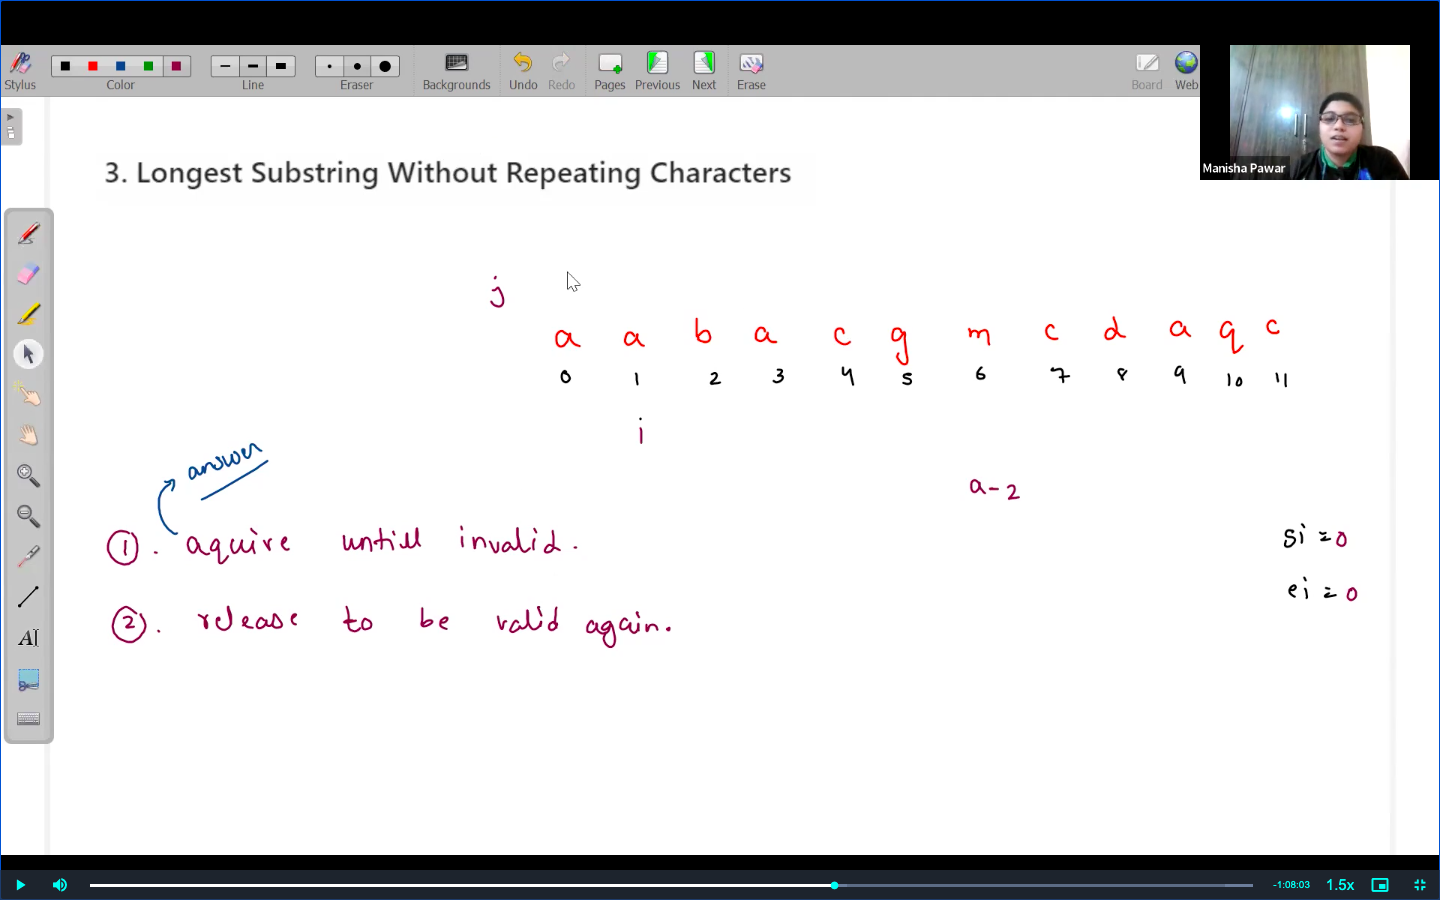 Stylus
Color
Line
Eraser
Backgrounds
Undo
Redo
Pages
Previous
Next
Erase
Board
Web
Manisha Pawar
3. Longest Substring Without Repeating Characters
j
a a b a c g m c d a q c
0 1 2 3 4 5 6 7 8 9 10 11
i
answer
a-2
① . aquire untill invalid.
si = 0
ei = 0
② . release to be valid again.
AI
-1:08:03
1.5x